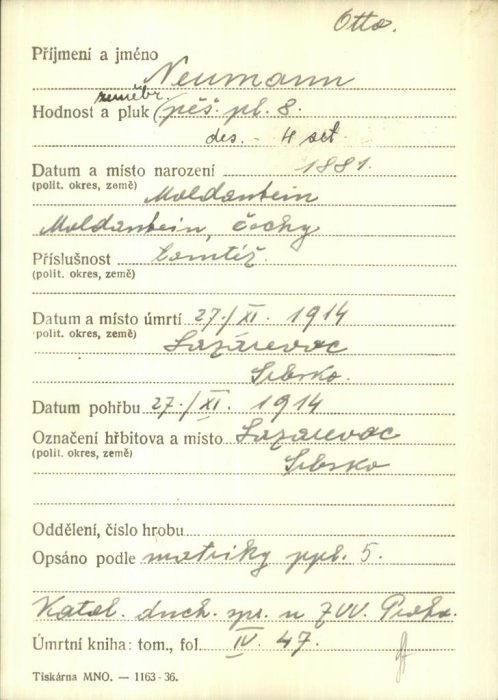 Otto.
Příjmení a jméno
Neumann
zeměbr.
Hodnost a pluk (pěš. pl. 8.
des. - 4 set
Datum a místo narození 1881.
(polit. okres, země)
Moldautein
Moldautein, Čechy
Příslušnost tamtéž.
(polit. okres, země)
Datum a místo úmrtí 27./XI. 1914
polit. okres, země)
Lazarevac
Srbsko.
Datum pohřbu 27./XI. 1914
Označení hřbitova a místo Lazarevac
(polit. okres, země)
Srbsko
Oddělení, číslo hrobu
Opsáno podle matriky ppl. 5.
Katol. duch. spr. u ZVV. Praha.
Úmrtní kniha: tom., fol. IV. 47.
Tiskárna MNO. — 1163-36.